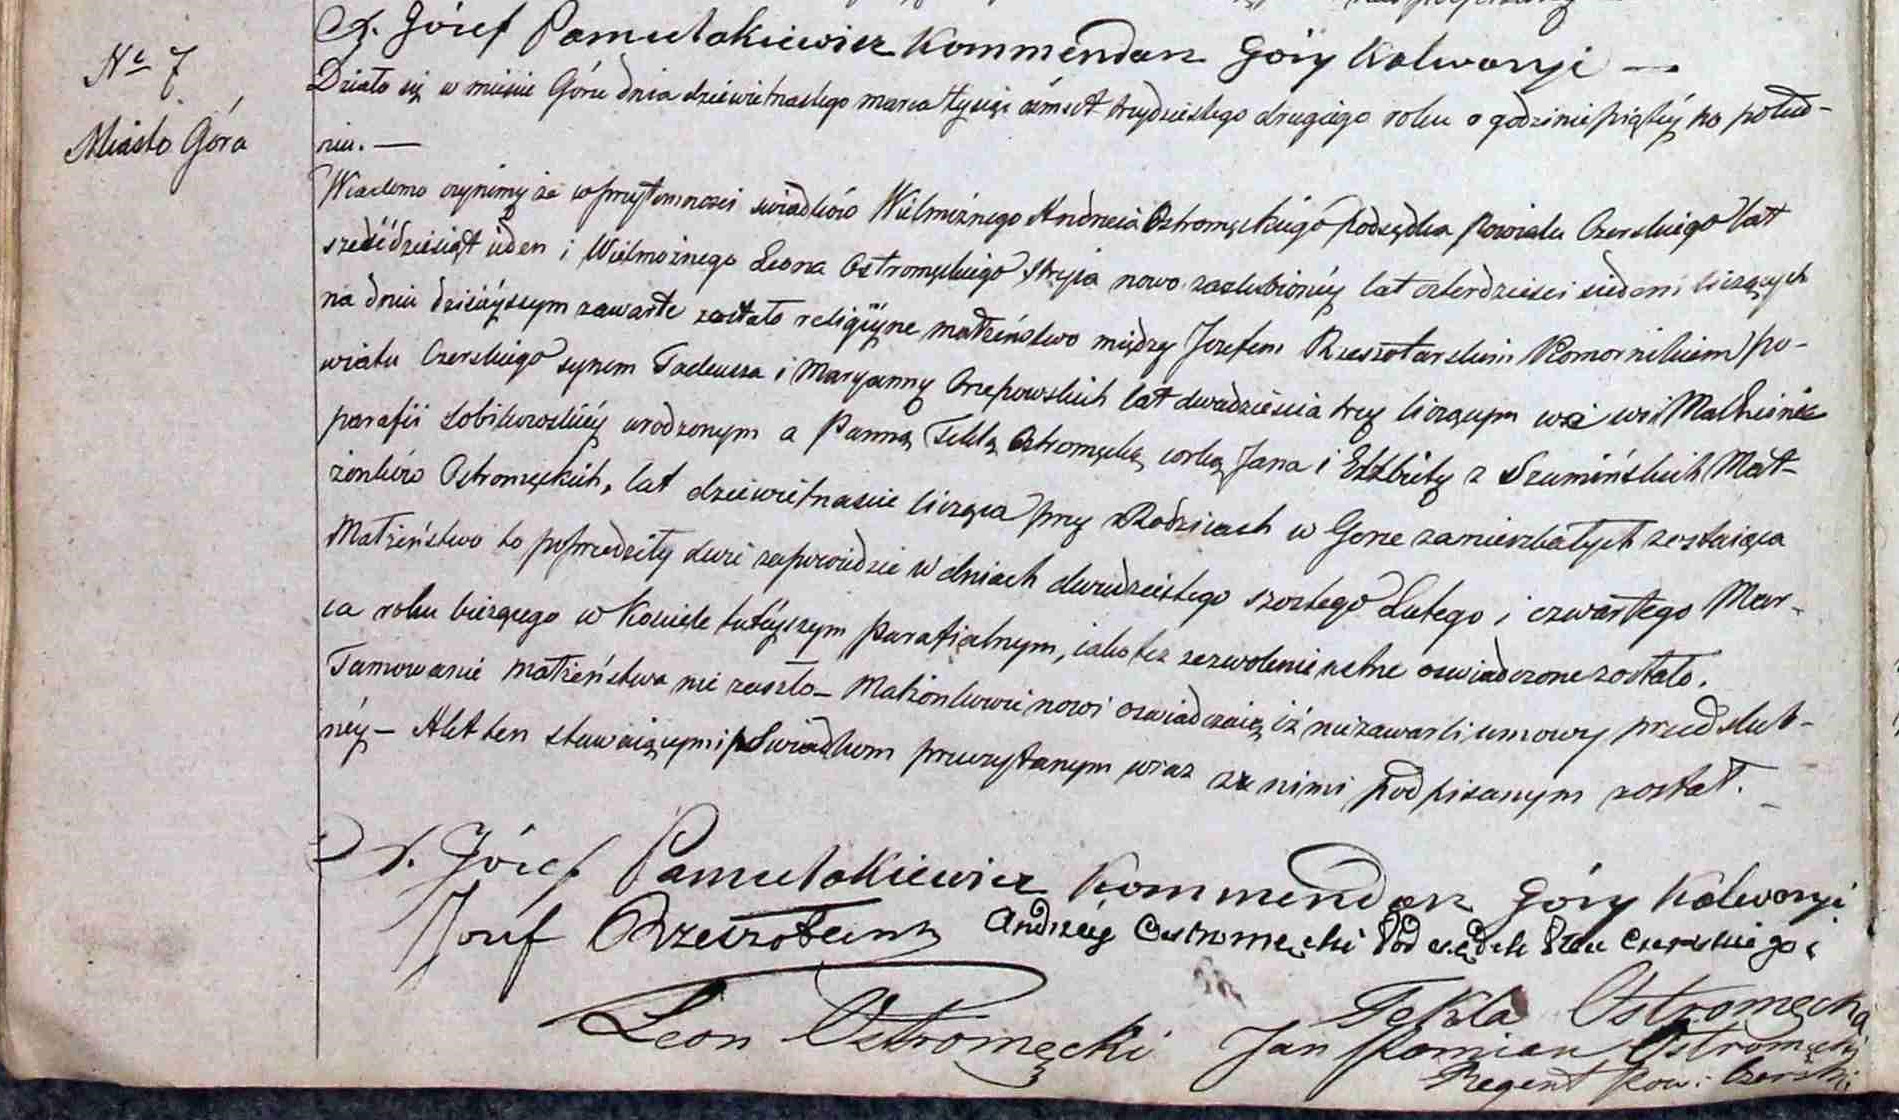 X. Józef Pamułakiewicz Kommendarz Góry Kalwaryi —
Nº 7
Miasto Góra
Działo się w mieście Górze dnia dziewietnastego marca tysiąc ośmset trzydziestego drugiego roku o godzinie piątéy po połud-
niu. —
Wiadomo czynimy że w przytomności świadków Wielmożnego Andrzeia Ostromęckiego Podsędka Powiatu Czerskiego lat
sześćdziesiąt ieden i Wielmożnego Leona Ostromęckiego Stryia nowo zaslubionéy lat czterdzieści siedem liczących
na dniu dzisiéyszym zawarte zostało religijne małżeństwo między Jozefem Rzeszotarskim Komornikiem Po-
wiatu Czerskiego synem Tadeusza i Maryanny Orzepowskich lat dwadzieścia trzy liczącym we wsi
parafii Sobikowskiéy urodzonym a Panną Teklą Ostromęcką corką Jana i Elżbiéty z Szumińskich Mał-
żonków Ostromęckich, lat dziewietnascie licząca przy Rodzicach w Gorze zamieszkałych zostaiąca
Małżeństwo to poprzedziły dwie zapowiedzie w dniach dwudziestego szostego Lutego i czwartego Mar-
ca roku bieżącego w Kosciele tutéyszym parafialnym, iako też zezwolenie ustne oswiadczone zostało.
Tamowanie małżeństwa nie zaszło – Małżonkowie nowi oswiadczaią iż nie zawarli umowy przedslub-
néy – Akt ten stawaiącym i Swiadkom przeczytanym wraz z nimi podpisanym został.
X. Józef Pamułakiewicz Kommendarz Góry Kalwaryi
Jozef Rzeszotarski Andrzéy Ostromęcki Podsędek Ptu Czerskiego
Leon Ostromęcki Tekla Ostromęcka
Jan Pomian Ostromęcki
Regent Pow: Czerski